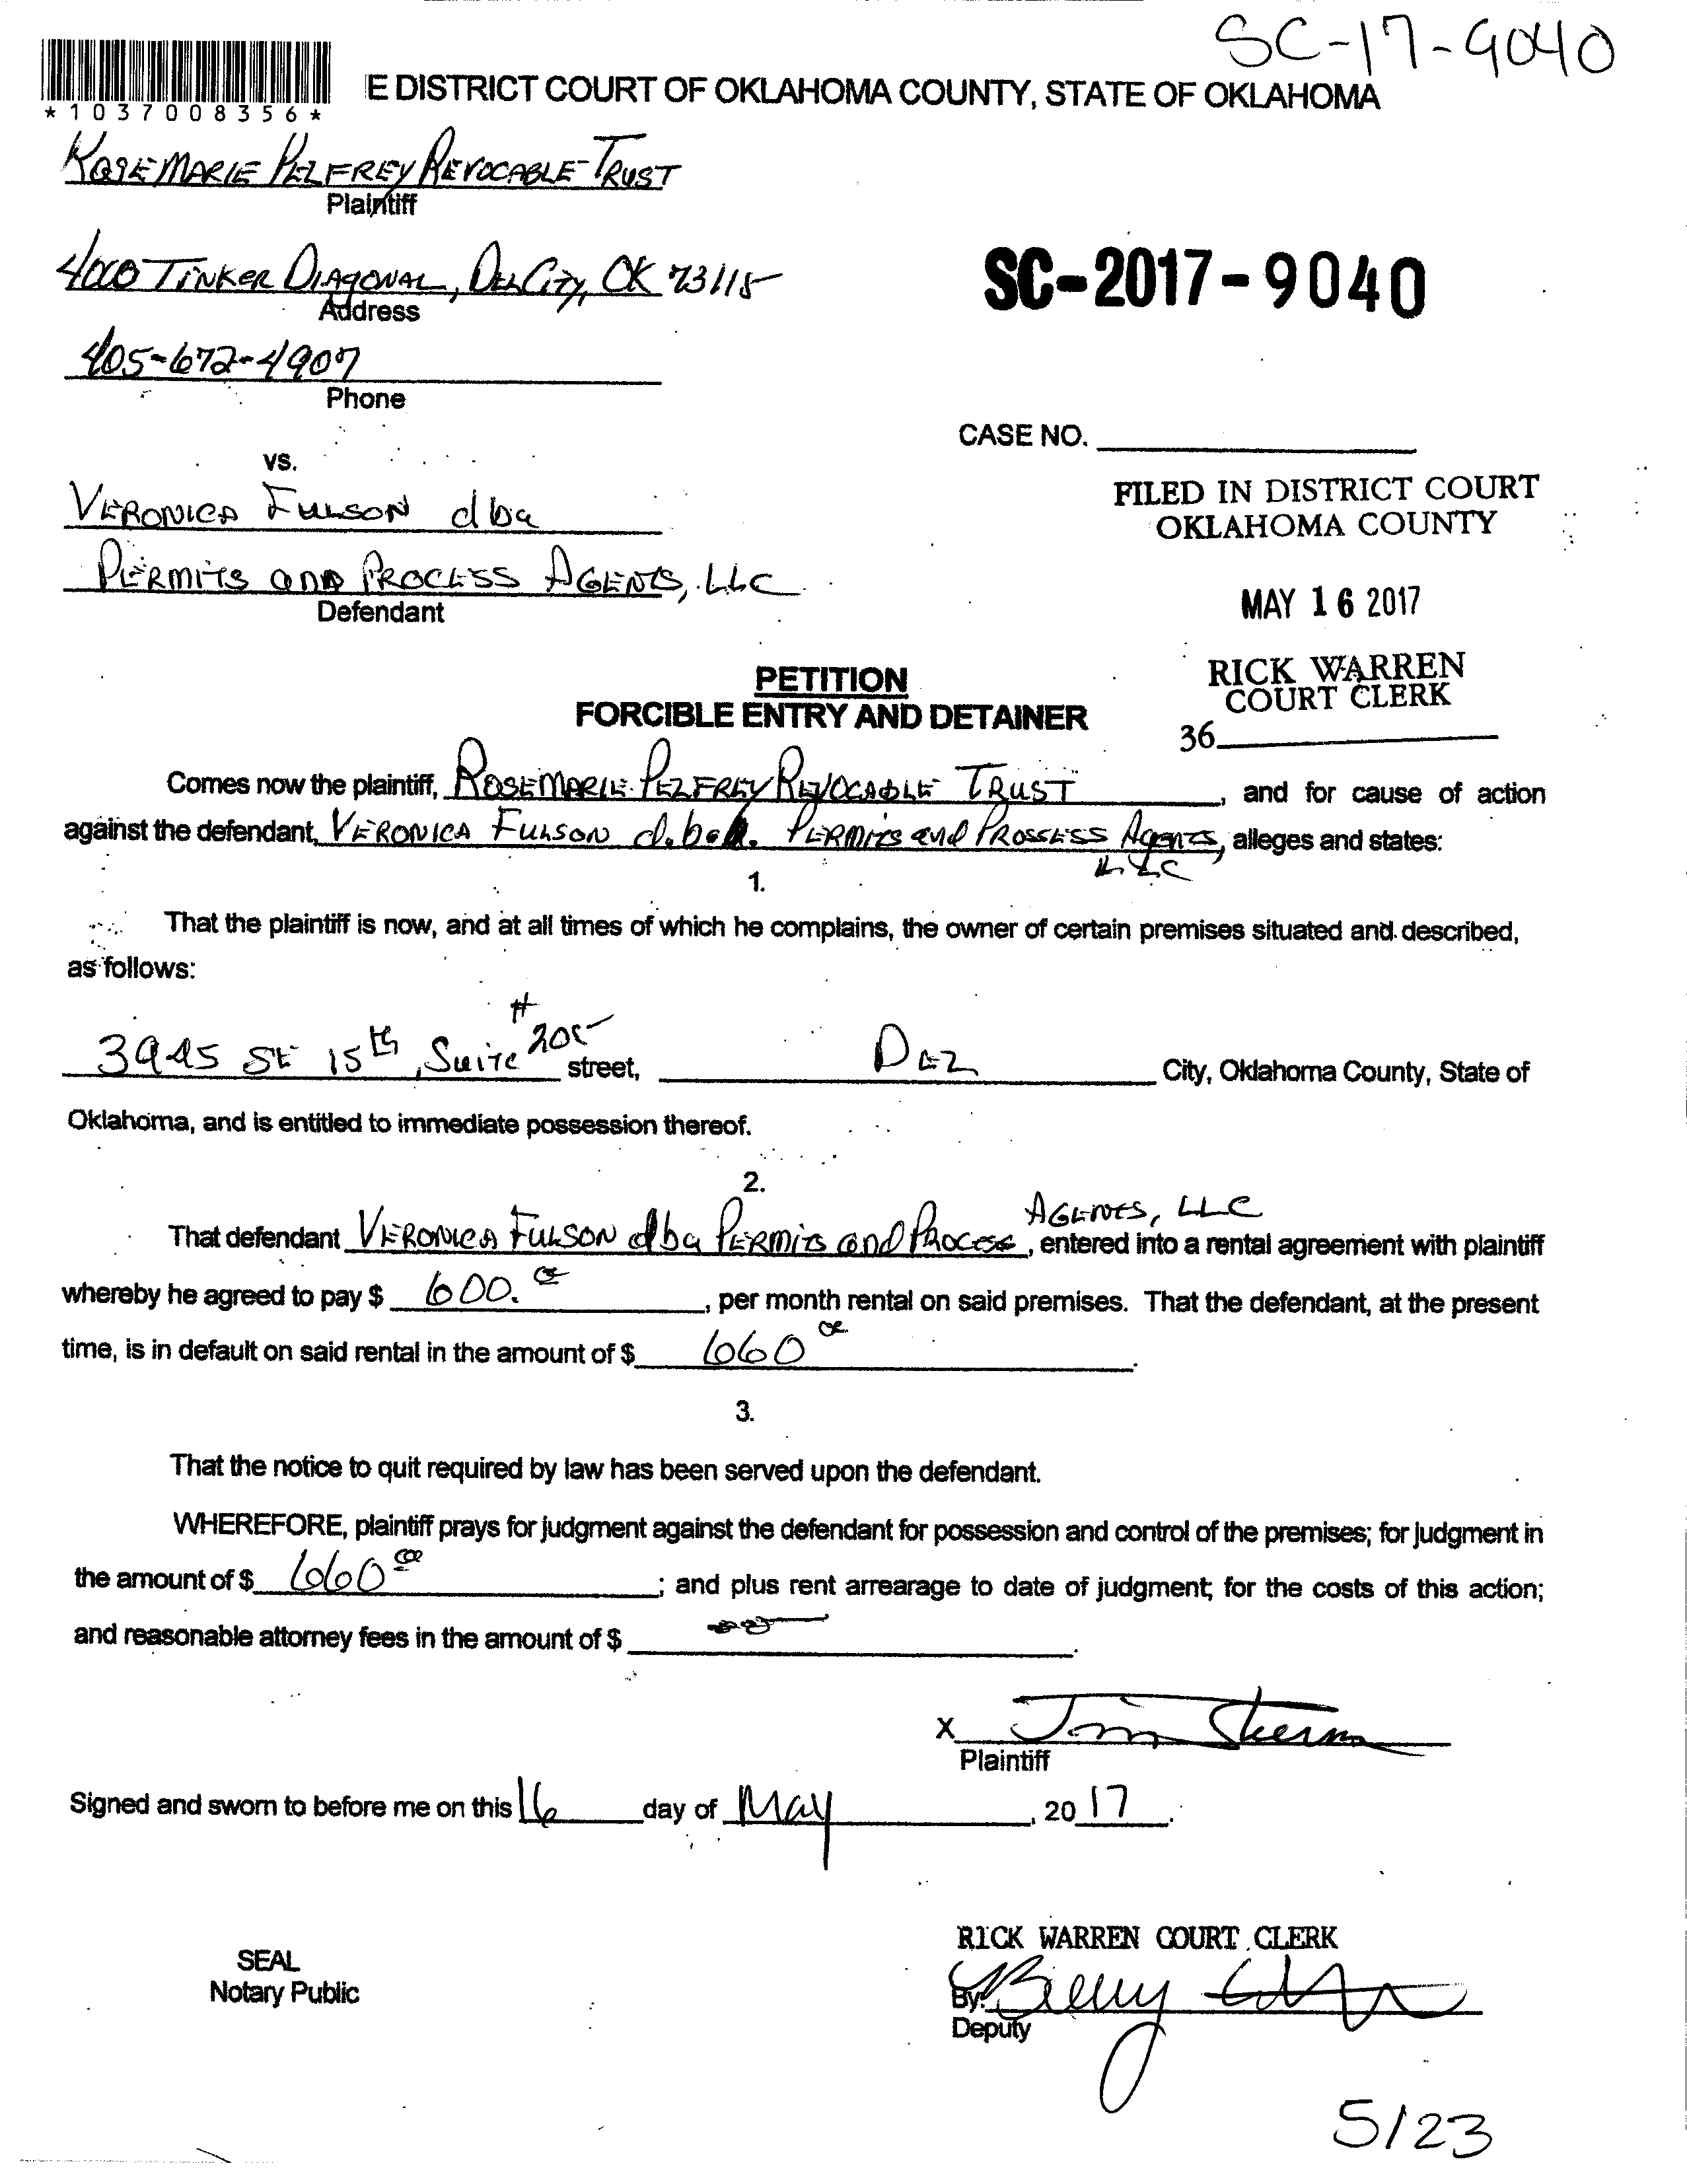 SC-17-9040
E DISTRICT COURT OF OKLAHOMA COUNTY, STATE OF OKLAHOMA
*1037008356*
ROSEMARIE PELFREY REVOCABLE TRUST
Plaintiff
4000 TINKER DIAGONAL, DEL CITY, OK 73115
Address
SC-2017-9040
405-672-4907
Phone
CASE NO.
vs.
VERONICA FULSON dba
PERMITS AND PROCESS AGENTS, LLC
Defendant
FILED IN DISTRICT COURT
OKLAHOMA COUNTY
MAY 16 2017
RICK WARREN
COURT CLERK
36
PETITION
FORCIBLE ENTRY AND DETAINER
Comes now the plaintiff, ROSEMARIE PELFREY REVOCABLE TRUST, and for cause of action
against the defendant, VERONICA FULSON d.b.a. PERMITS and PROSSESS AGENTS, LLC alleges and states:
1.
That the plaintiff is now, and at all times of which he complains, the owner of certain premises situated and described,
as follows:
3945 SE 15th, Suite #205 street, DEL City, Oklahoma County, State of
Oklahoma, and is entitled to immediate possession thereof.
2.
That defendant VERONICA FULSON dba PERMITS and PROCESS AGENTS, LLC, entered into a rental agreement with plaintiff
whereby he agreed to pay $ 600.00, per month rental on said premises. That the defendant, at the present
time, is in default on said rental in the amount of $ 660 00.
3.
That the notice to quit required by law has been served upon the defendant.
WHEREFORE, plaintiff prays for judgment against the defendant for possession and control of the premises; for judgment in
the amount of $ 660 00; and plus rent arrearage to date of judgment; for the costs of this action;
and reasonable attorney fees in the amount of $
X Jim Sherman
Plaintiff
Signed and sworn to before me on this 16 day of May, 20 17.
RICK WARREN COURT CLERK
SEAL
Notary Public
By:
Deputy
5/23